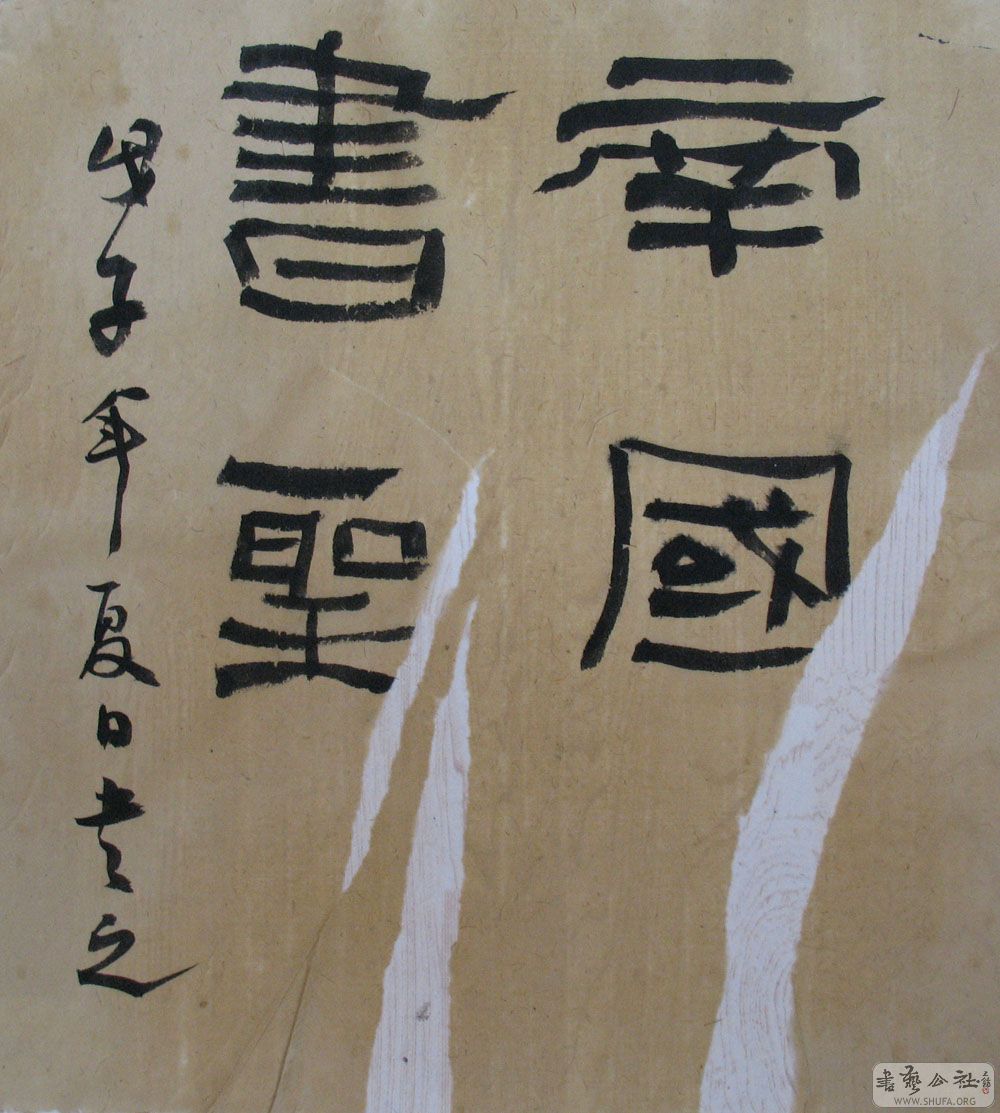 南國
書聖
戊子年夏日之
書藝公社
WWW.SHUFA.ORG